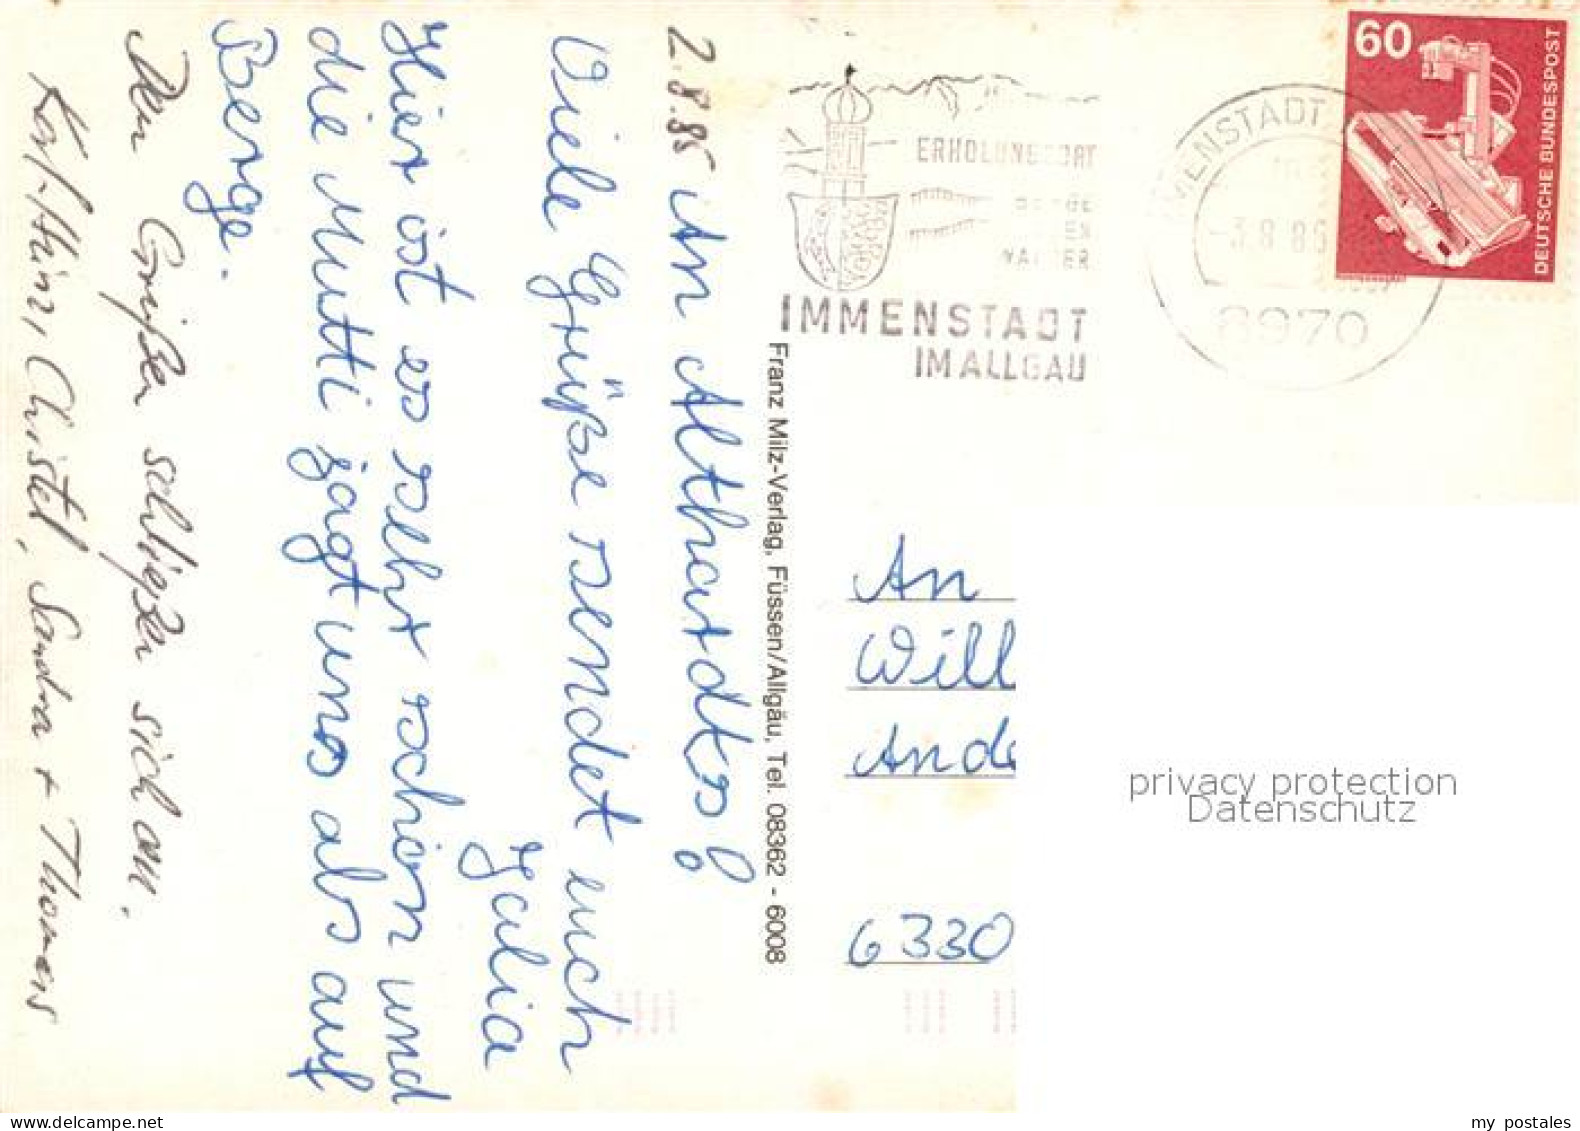 2.8.85
An Althardts!
Viele Grüße sendet euch
n
Julia
Hier ist es sehr schön und
die Mutti jagt uns abs auf
Berge.
Den Grüßen schließen sich an.
Karl-Heinz, Christel, Sandra + Thomas
Franz Milz-Verlag, Füssen/Allgäu, Tel. 08362 - 6008
ERHOLUNGSORT
IMMENSTADT
IM ALLGÄU
IMMENSTADT
-3.8.85
8970
60
DEUTSCHE BUNDESPOST
An
Will
Ande
6330
privacy protection
Datenschutz
my postales